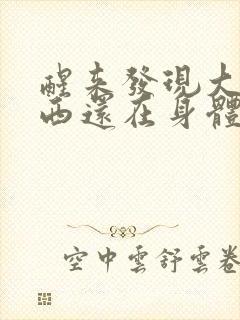 醒來發現大
西還在身體
空中雲舒雲卷